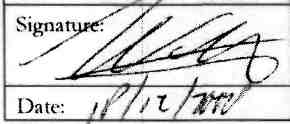 Signature:
Date: 18/12/2008